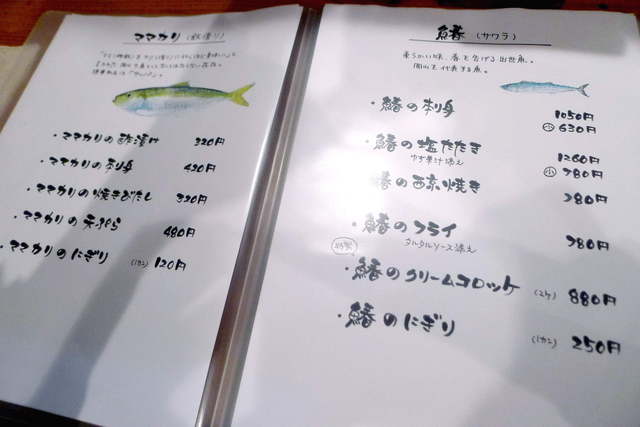 ママカリ
・ママカリの酢漬け 320円
・ママカリの刺身 420円
・ママカリの焼きびたし 320円
・ママカリの天ぷら 480円
・ママカリのにぎり (1カン) 120円
鰆 (サワラ)
柔らかい味、春を告げる出世魚。
岡山を代表する魚。
・鰆の刺身 1050円
小 630円
・鰆の塩たたき 1260円
ゆず果汁添え 小 780円
鰆の西京焼き 780円
・鰆のフライ 780円
タルタルソース添え
・鰆のクリームコロッケ (2ケ) 880円
・鰆のにぎり (1カン) 250円